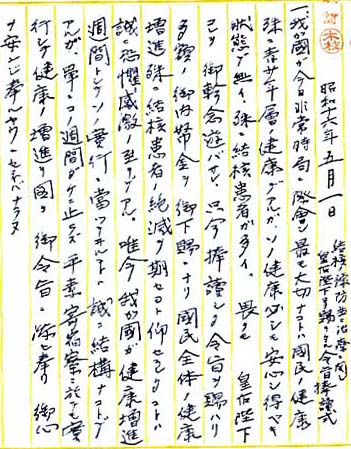 昭和十六年五月一日
結核ノ予防並ニ治療ニ関シ
皇后陛下ヨリ賜ハリタル令旨捧読式
一、我ガ国ガ今日非常時局ニ際会シ最モ大切ナコトハ国民ノ健康
殊ニ青少年層ノ健康デアルガ、ソノ健康必ズシモ安心シ得ベキ
状態デ無イ、殊ニ結核患者ガ多イ、畏クモ 皇后陛下
ニハ御軫念遊バサレ、只今捧読シタ令旨ヲ賜ハリ
多額ノ御内帑金ヲ御下賜ニナリ国民全体ノ健康
増進殊ニ結核患者ノ絶滅ヲ期セヨト仰セラルコトハ
誠ニ恐懼感激ノ至リデアル。唯今我ガ国ガ健康増進
週間トシテ実行ニ当ツテ誠ニ結構ナコトデ
アルガ、単ニコノ週間ダケニ止ラズ平素寄宿寮ニ於テモ実
行シテ健康ヲ増進シ国ノ 御令旨ニ添ヒ奉リ 御心
ヲ安ンジ奉ルヤウニセネバナラヌ